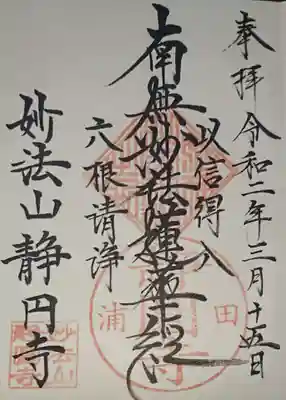 奉拝 令和二年三月十五日
以信得入
南無妙法蓮華経
六根請浄
妙法山静円寺